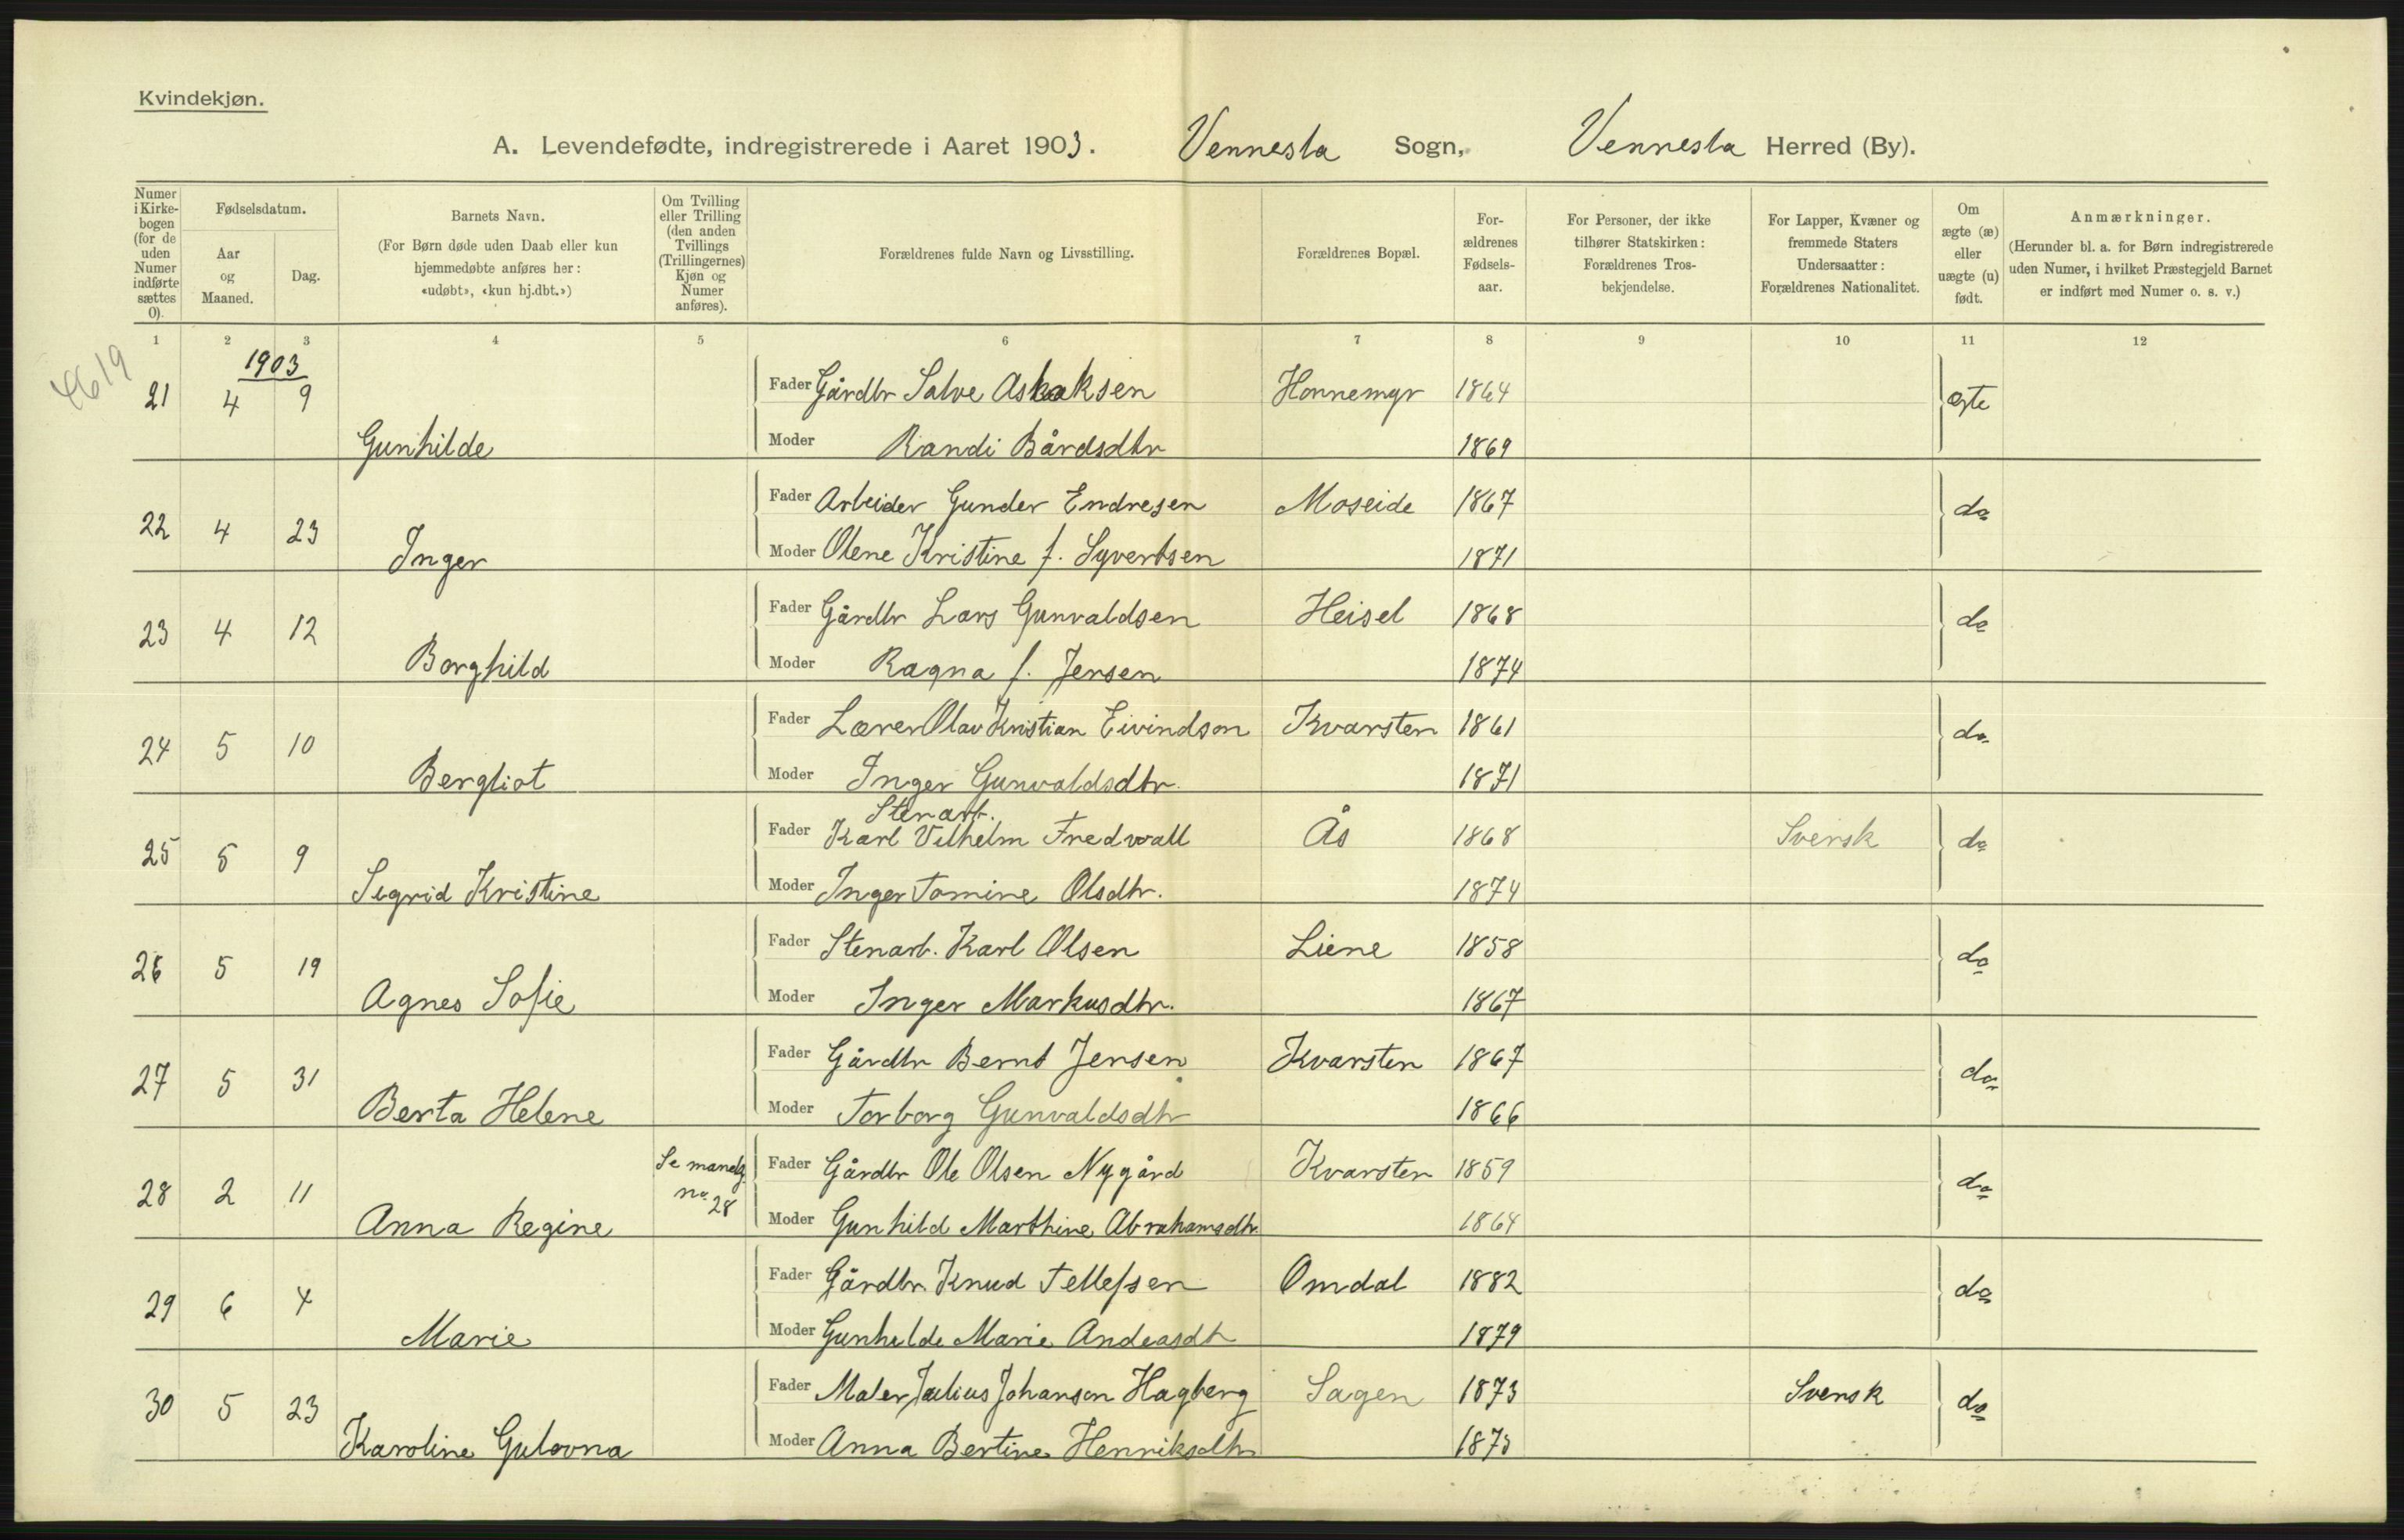 Kvindekjøn.
A. Levendefødte, indregistrerede i Aaret 1903. Vennesla Sogn, Vennesla Herred (By).
Numer i Kirkebogen (for de uden Numer indførte sættes 0).
Fødselsdatum.
Aar og Maaned.
Dag.
Barnets Navn.
(For Børn døde uden Daab eller kun
hjemmedøbte anføres her:
«udøbt», «kun hj.dbt.»)
Om Tvilling
eller Trilling
(den anden
Tvillings
(Trillingernes)
Kjøn og
Numer
anføres).
Forældrenes fulde Navn og Livsstilling.
Forældrenes Bopæl.
For-
ældrenes
Fødsels-
aar.
For Personer, der ikke
tilhører Statskirken:
Forældrenes Tros-
bekjendelse.
For Lapper, Kvæner og
fremmede Staters
Undersaatter:
Forældrenes Nationalitet.
Om
ægte (æ)
eller
uægte (u)
født.
Anmærkninger.
(Herunder bl. a. for Børn indregistrerede
uden Numer, i hvilket Præstegjeld Barnet
er indført med Numer o. s. v.)
1 2 3 4 5 6 7 8 9 10 11 12
4619
1903
21 4 9 Fader Gårdbr Salve Aslaksen Honnemyr 1864 ægte
Gunhilde Moder Randi Bårdsdtr 1869
22 4 23 Fader Arbeider Gunder Endresen Moseide 1867 do
Inger Moder Olene Kristine f. Syvertsen 1871
23 4 12 Fader Gårdbr Lars Gunvaldsen Heisel 1868 do
Borghild Moder Ragna f. Jensen 1874
24 5 10 Fader Lærer Olav Kristian Eivindson Kvarsten 1861 do
Bergliot Moder Inger Gunvaldsdtr. 1871
Stenarb.
25 5 9 Fader Karl Vilhelm Fredwall Ås 1868 Svensk do
Sigrid Kristine Moder Inger Tomine Olsdtr. 1874
26 5 19 Fader Stenarb. Karl Olsen Liene 1858 do
Agnes Sofie Moder Inger Markusdtr. 1867
27 5 31 Fader Gårdbr Bernt Jensen Kvarsten 1867 do
Berta Helene Moder Torborg Gunvaldsdtr 1866
28 2 11 Se mandkj. Fader Gårdbr Ole Olsen Nygård Kvarsten 1859 do
no 28
Anna Regine Moder Gunhild Marthine Abrahamsdtr. 1864
29 6 4 Fader Gårdbr. Knud Tellefsen Omdal 1882 do
Marie Moder Gunhilde Marie Andeasdt 1879
30 5 23 Fader Maler Julius Johanson Hagberg Sagen 1873 Svensk do
Karoline Gulovna Moder Anna Bertine Henriksdtr 1873